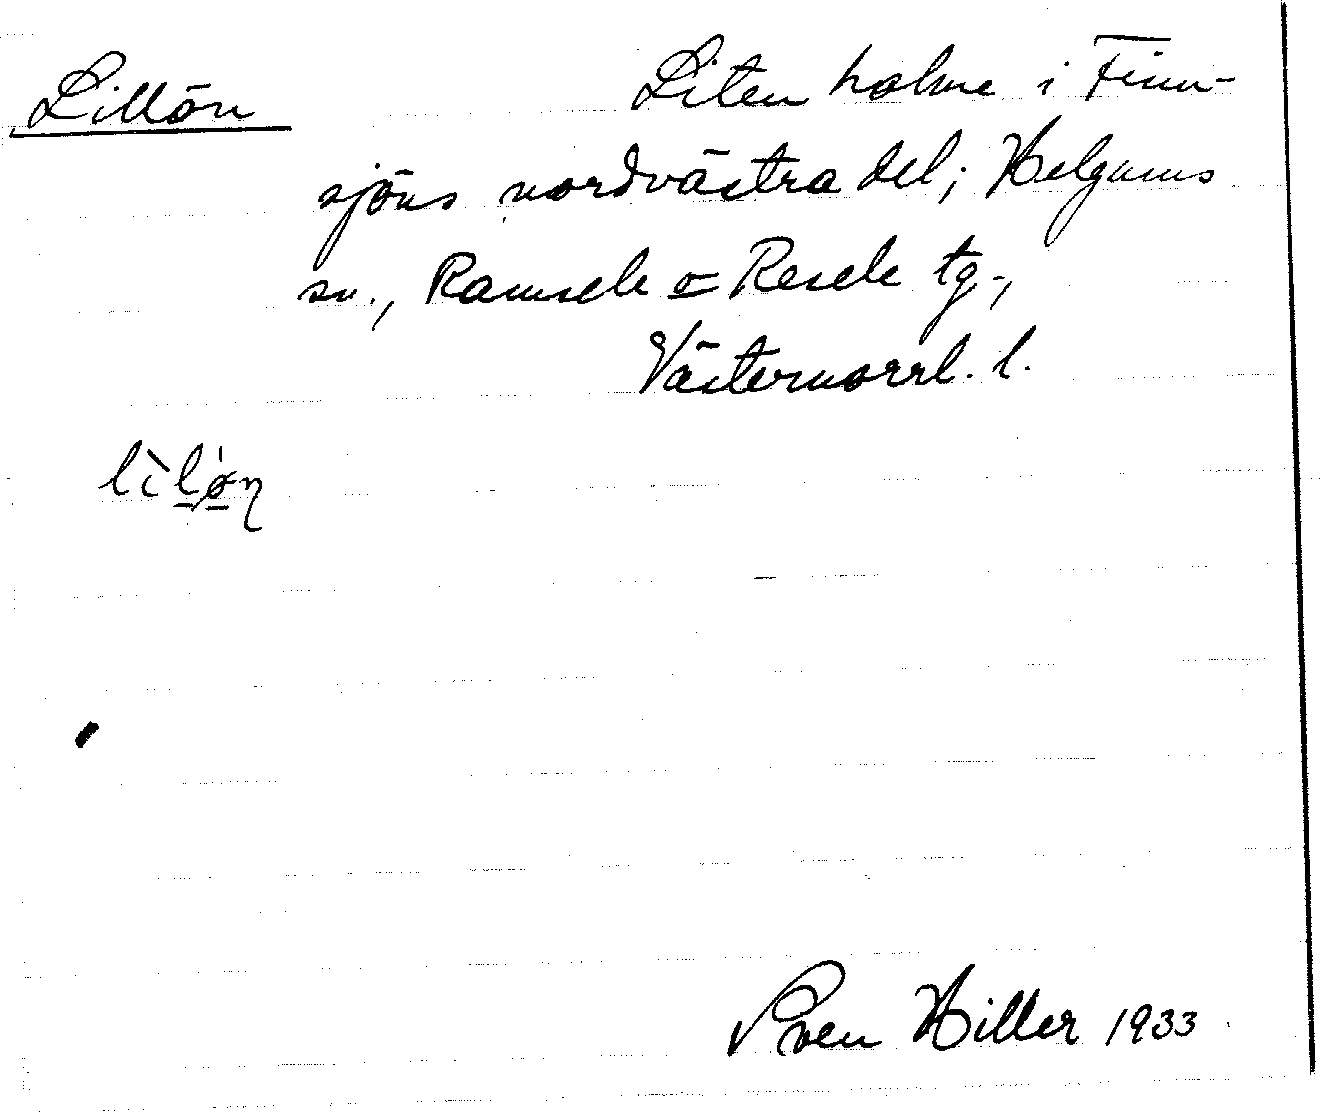 Lillön Liten holme i Finn-
sjöns nordvästra del; Helgums
sn., Ramsele o Resele tg.,
Västernorrl. l.
Sven Hiller 1933